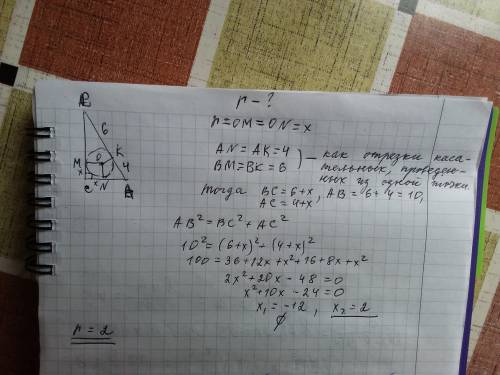 r - ?
r = OM = ON = x
B
6
K
M
O
4
x
C
x
N
A
AN = AK = 4
BM = BK = 6
} — как отрезки каса-
тельных, проведен-
ных из одной точки.
Тогда BC = 6+x, AB = 6+4 = 10,
AC = 4+x
AB² = BC² + AC²
10² = (6+x)² + (4+x)²
100 = 36 + 12x + x² + 16 + 8x + x²
2x² + 20x - 48 = 0
x² + 10x - 24 = 0
x₁ = -12, x₂ = 2
∅
r = 2